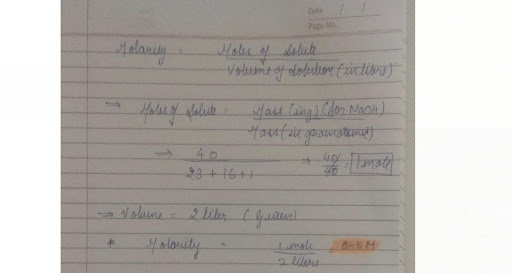 Date / /
Page No.
Molarity = Moles of Solute
Volume of Solution (in liters)
→ Moles of Solute = Mass (in g) (for NaOH)
Mass (in gramatomic)
→ 40 → 40 = 1 mole
23 + 16 + 1 40
→ Volume = 2 liter (given)
* Molarity = 1 mole 0.5 M
2 liters